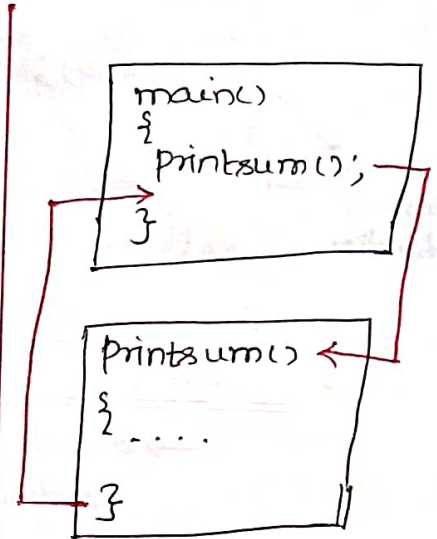 main()
{
printsum();
}
printsum()
{ ....
}